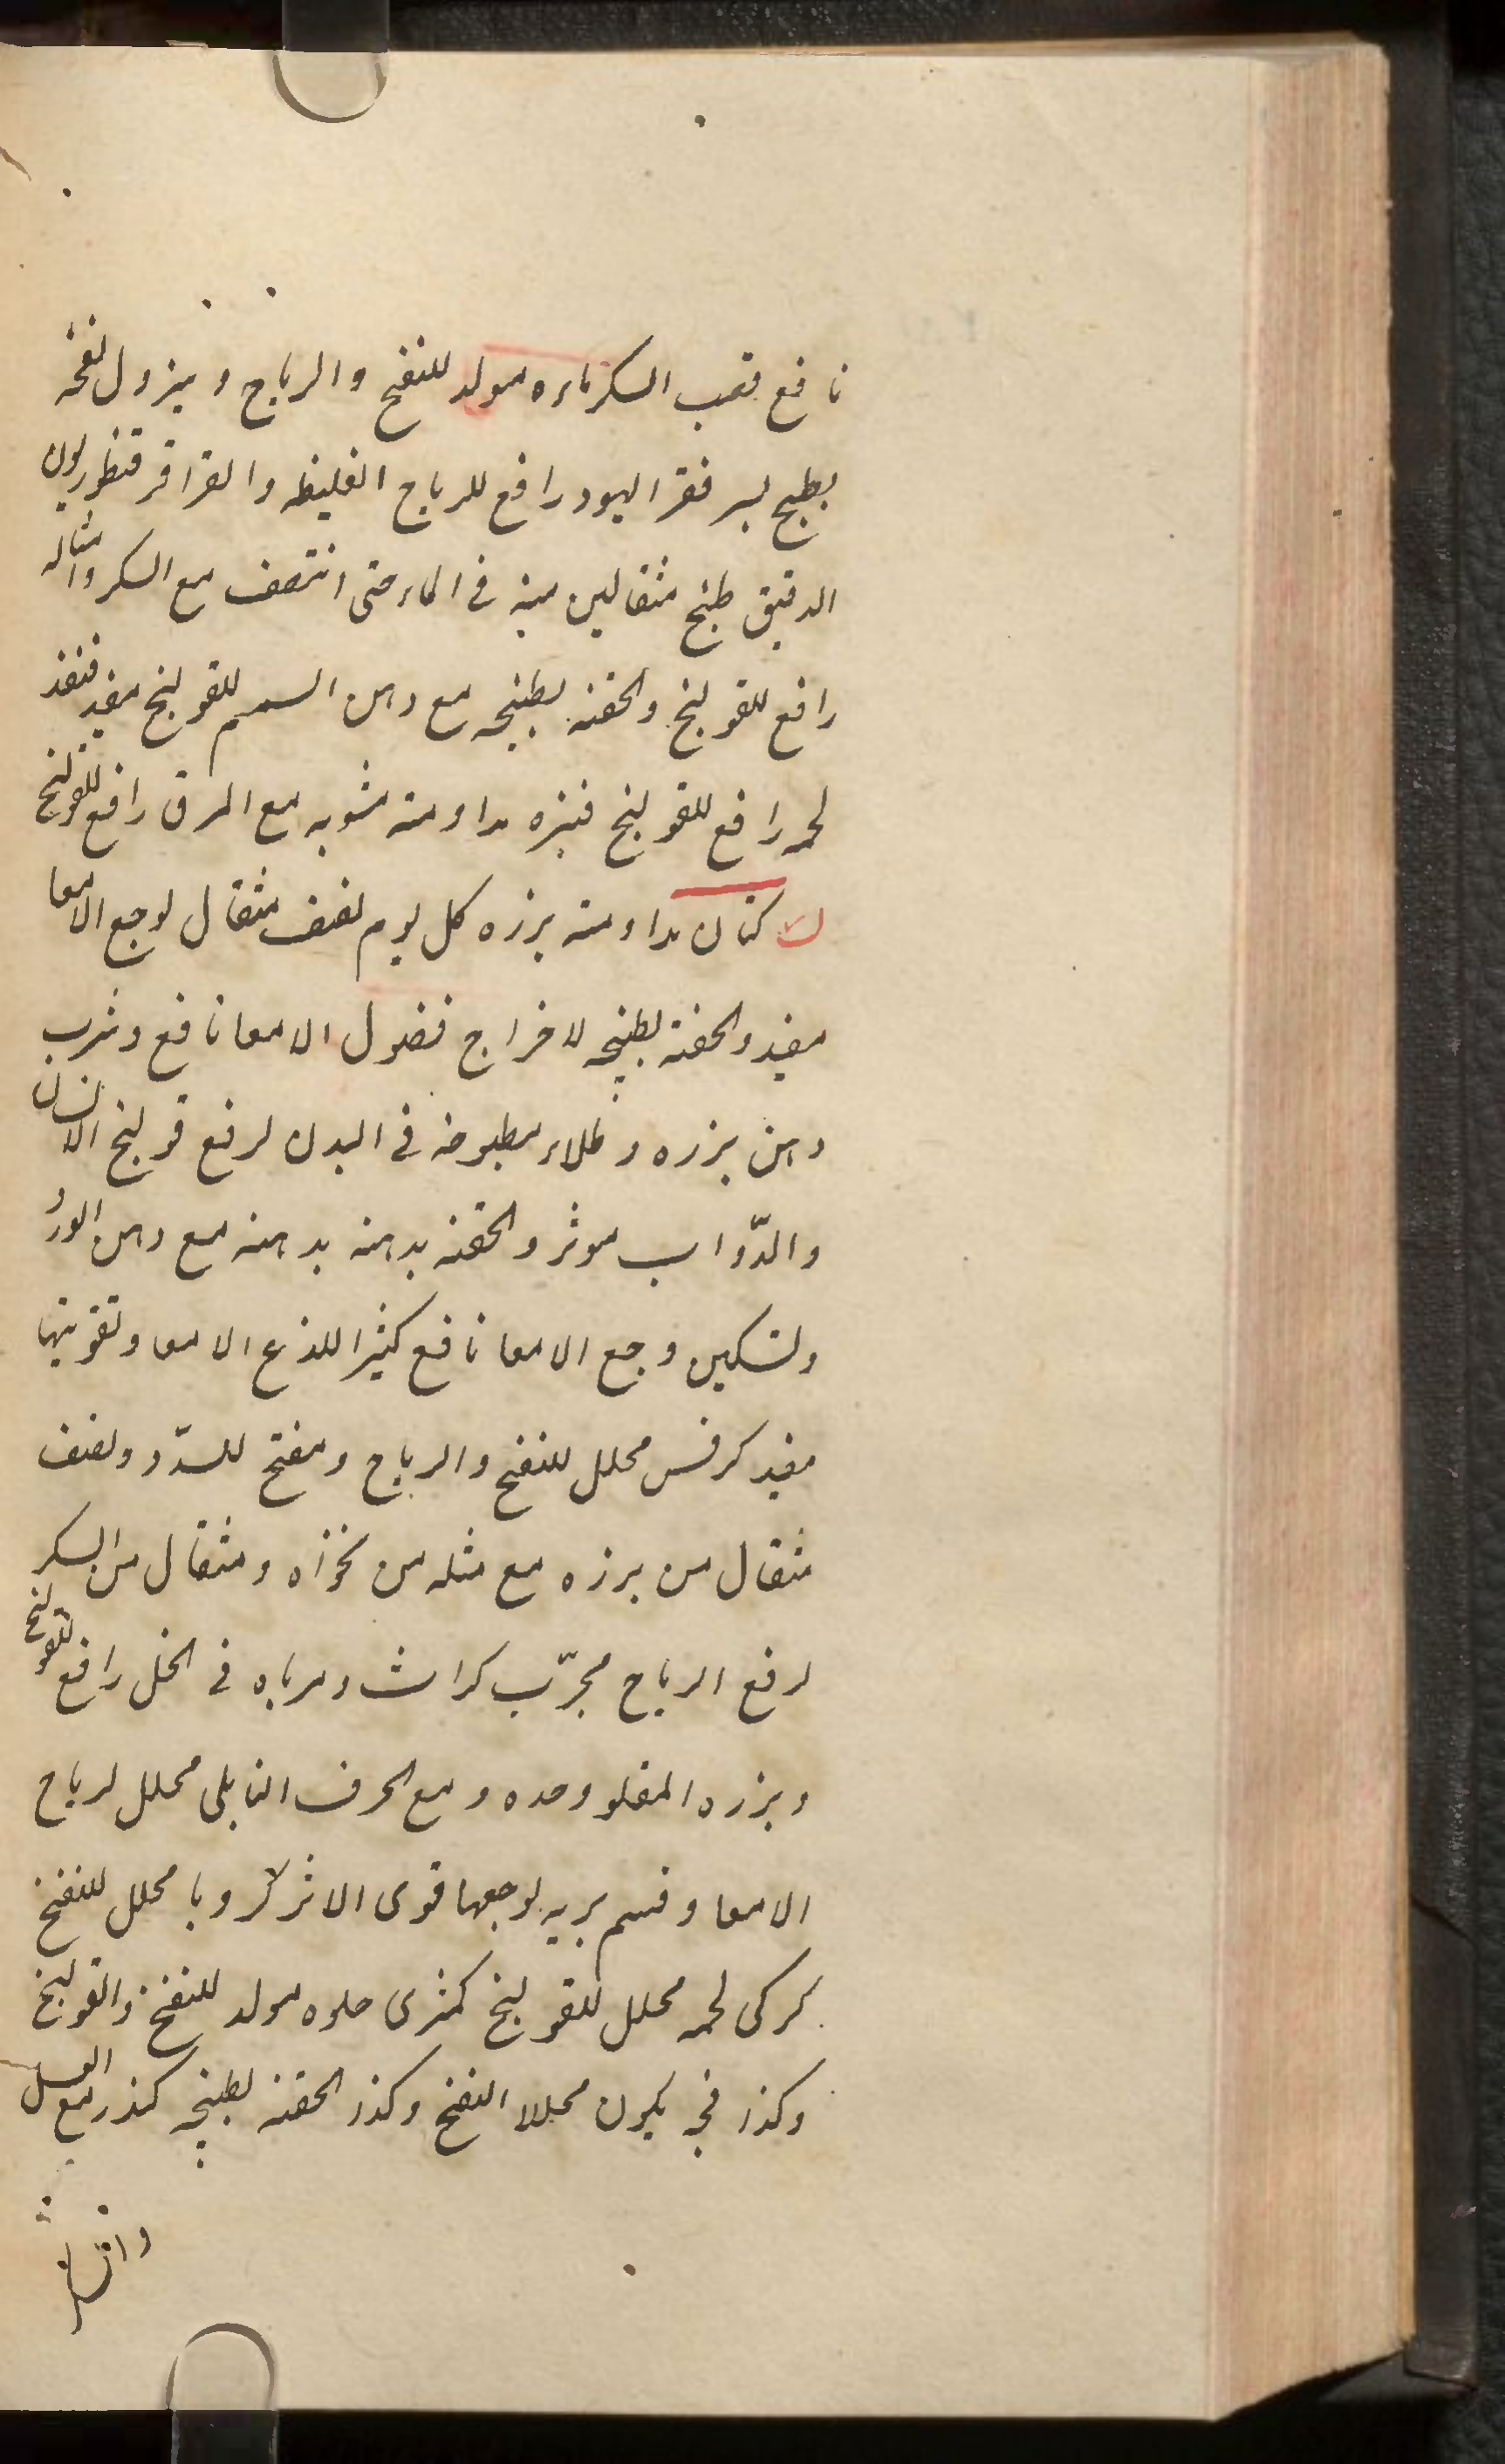 نافع قصب السكر ماءه مولد للنفخ والرياح ويزول نفخه
بطبخ يسر فقر اليهود رافع للرياح الغليظه والقراقر قنطوريون
الدقيق طبخ مثقالين منه فى الماء حتى انتصف مع السكر وامثاله
رافع للقولنج والحقنه بطبخه مع دهن السمسم للقولنج مفيد قنفذ
لحمه رافع للقولنج قنبره مداومته مشويه مع المرق رافع للقولنج
ك كتان مداومته برزه كل يوم نصف مثقال لوجع الامعا
مفيد والحقنة بطبخه لاخراج فضول الامعا نافع وشرب
دهن بزره وطلاء مطبوخه فى البدن لرفع قولنج الانسان
والدّواب موثر والحقنه بدهنه بدهنه مع دهن الورد
ولتسكين وجع الامعا نافع كثيرا للذع الامعا وتقويتها
مفيد كرفس محلل للنفخ والرياح ومفتح للسدّد ونصف
مثقال من برزه مع مثله من نخواه ومثقال من السكر
لرفع الرياح مجرّب كراث ومرباه فى الخل رافع للقولنج
وبزره المقلو وحده ومع الحرف البابلى محلل لرياح
الامعا وقسم بريه لوجعها قوى الاثر كرويا محلل للنفخ
كركى لحمه محلل للقولنج كمثرى حلوه مولد للنفخ والقولنج
وكذا فجه يكون محللا النفخ وكذا الحقنه بطبخه كندر مع العسل